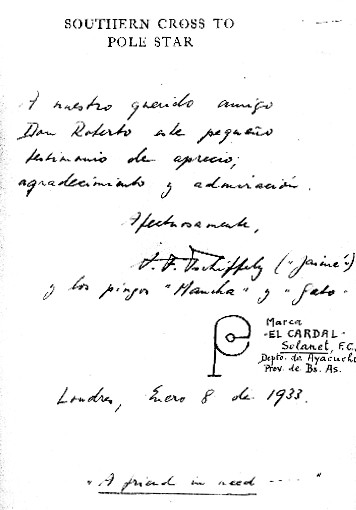 SOUTHERN CROSS TO
POLE STAR
A nuestro querido amigo
Don Roberto este pequeño
testimonio de aprecio,
agradecimiento y admiración.
Afectuosamente,
A. F. Tschiffely ("Jaime")
y los pingos "Mancha" y "Gato".
Marca
"EL CARDAL"
Solanet, F.C.
Depto. de Ayacucho
Prov. de Bs. As.
Londres, Enero 8 de 1933.
"A friend in need ----"